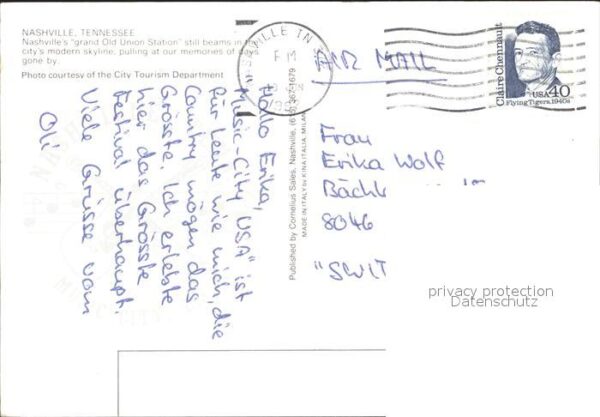 NASHVILLE, TENNESSEE
Nashville's "grand Old Union Station" still beams in the
city's modern skyline; pulling at our memories of days
gone by.
Photo courtesy of the City Tourism Department
Hallo Erika,
"Music-City USA" ist
für Leute wie mich, die
Country mögen das
Grösste. Ich erlebte
hier das Grösste
Festival überhaupt.
Viele Grüsse vom
Oli
Published by Cornelius Sales, Nashville, (615) 367-1679
MADE IN ITALY by KINA ITALIA, MILAN
NASHVILLE TN
PM
AIR MAIL
Claire Chennault
USA 40
Flying Tigers, 1940s
Frau
Erika Wolf
Bächl
8046
"SWIT
privacy protection
Datenschutz
MUSIC CITY